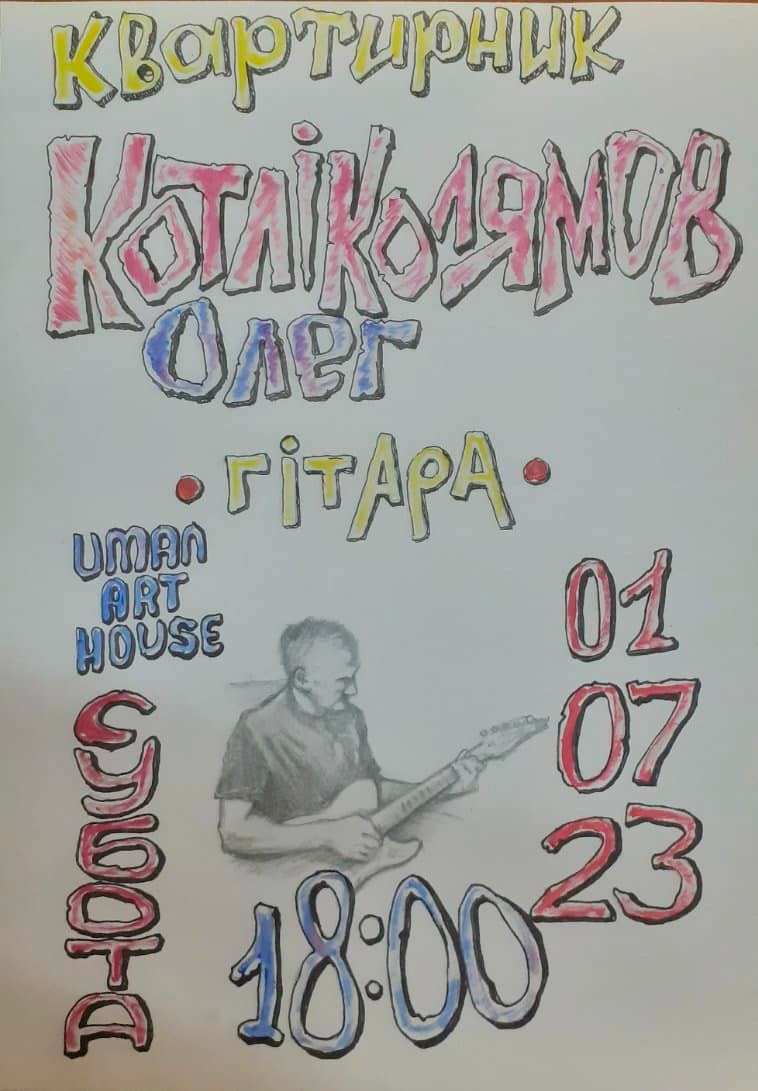 Квартирник
Котліколямов
Олег
• гітара •
UMAN
ART
HOUSE
01
07
23
субота
18:00